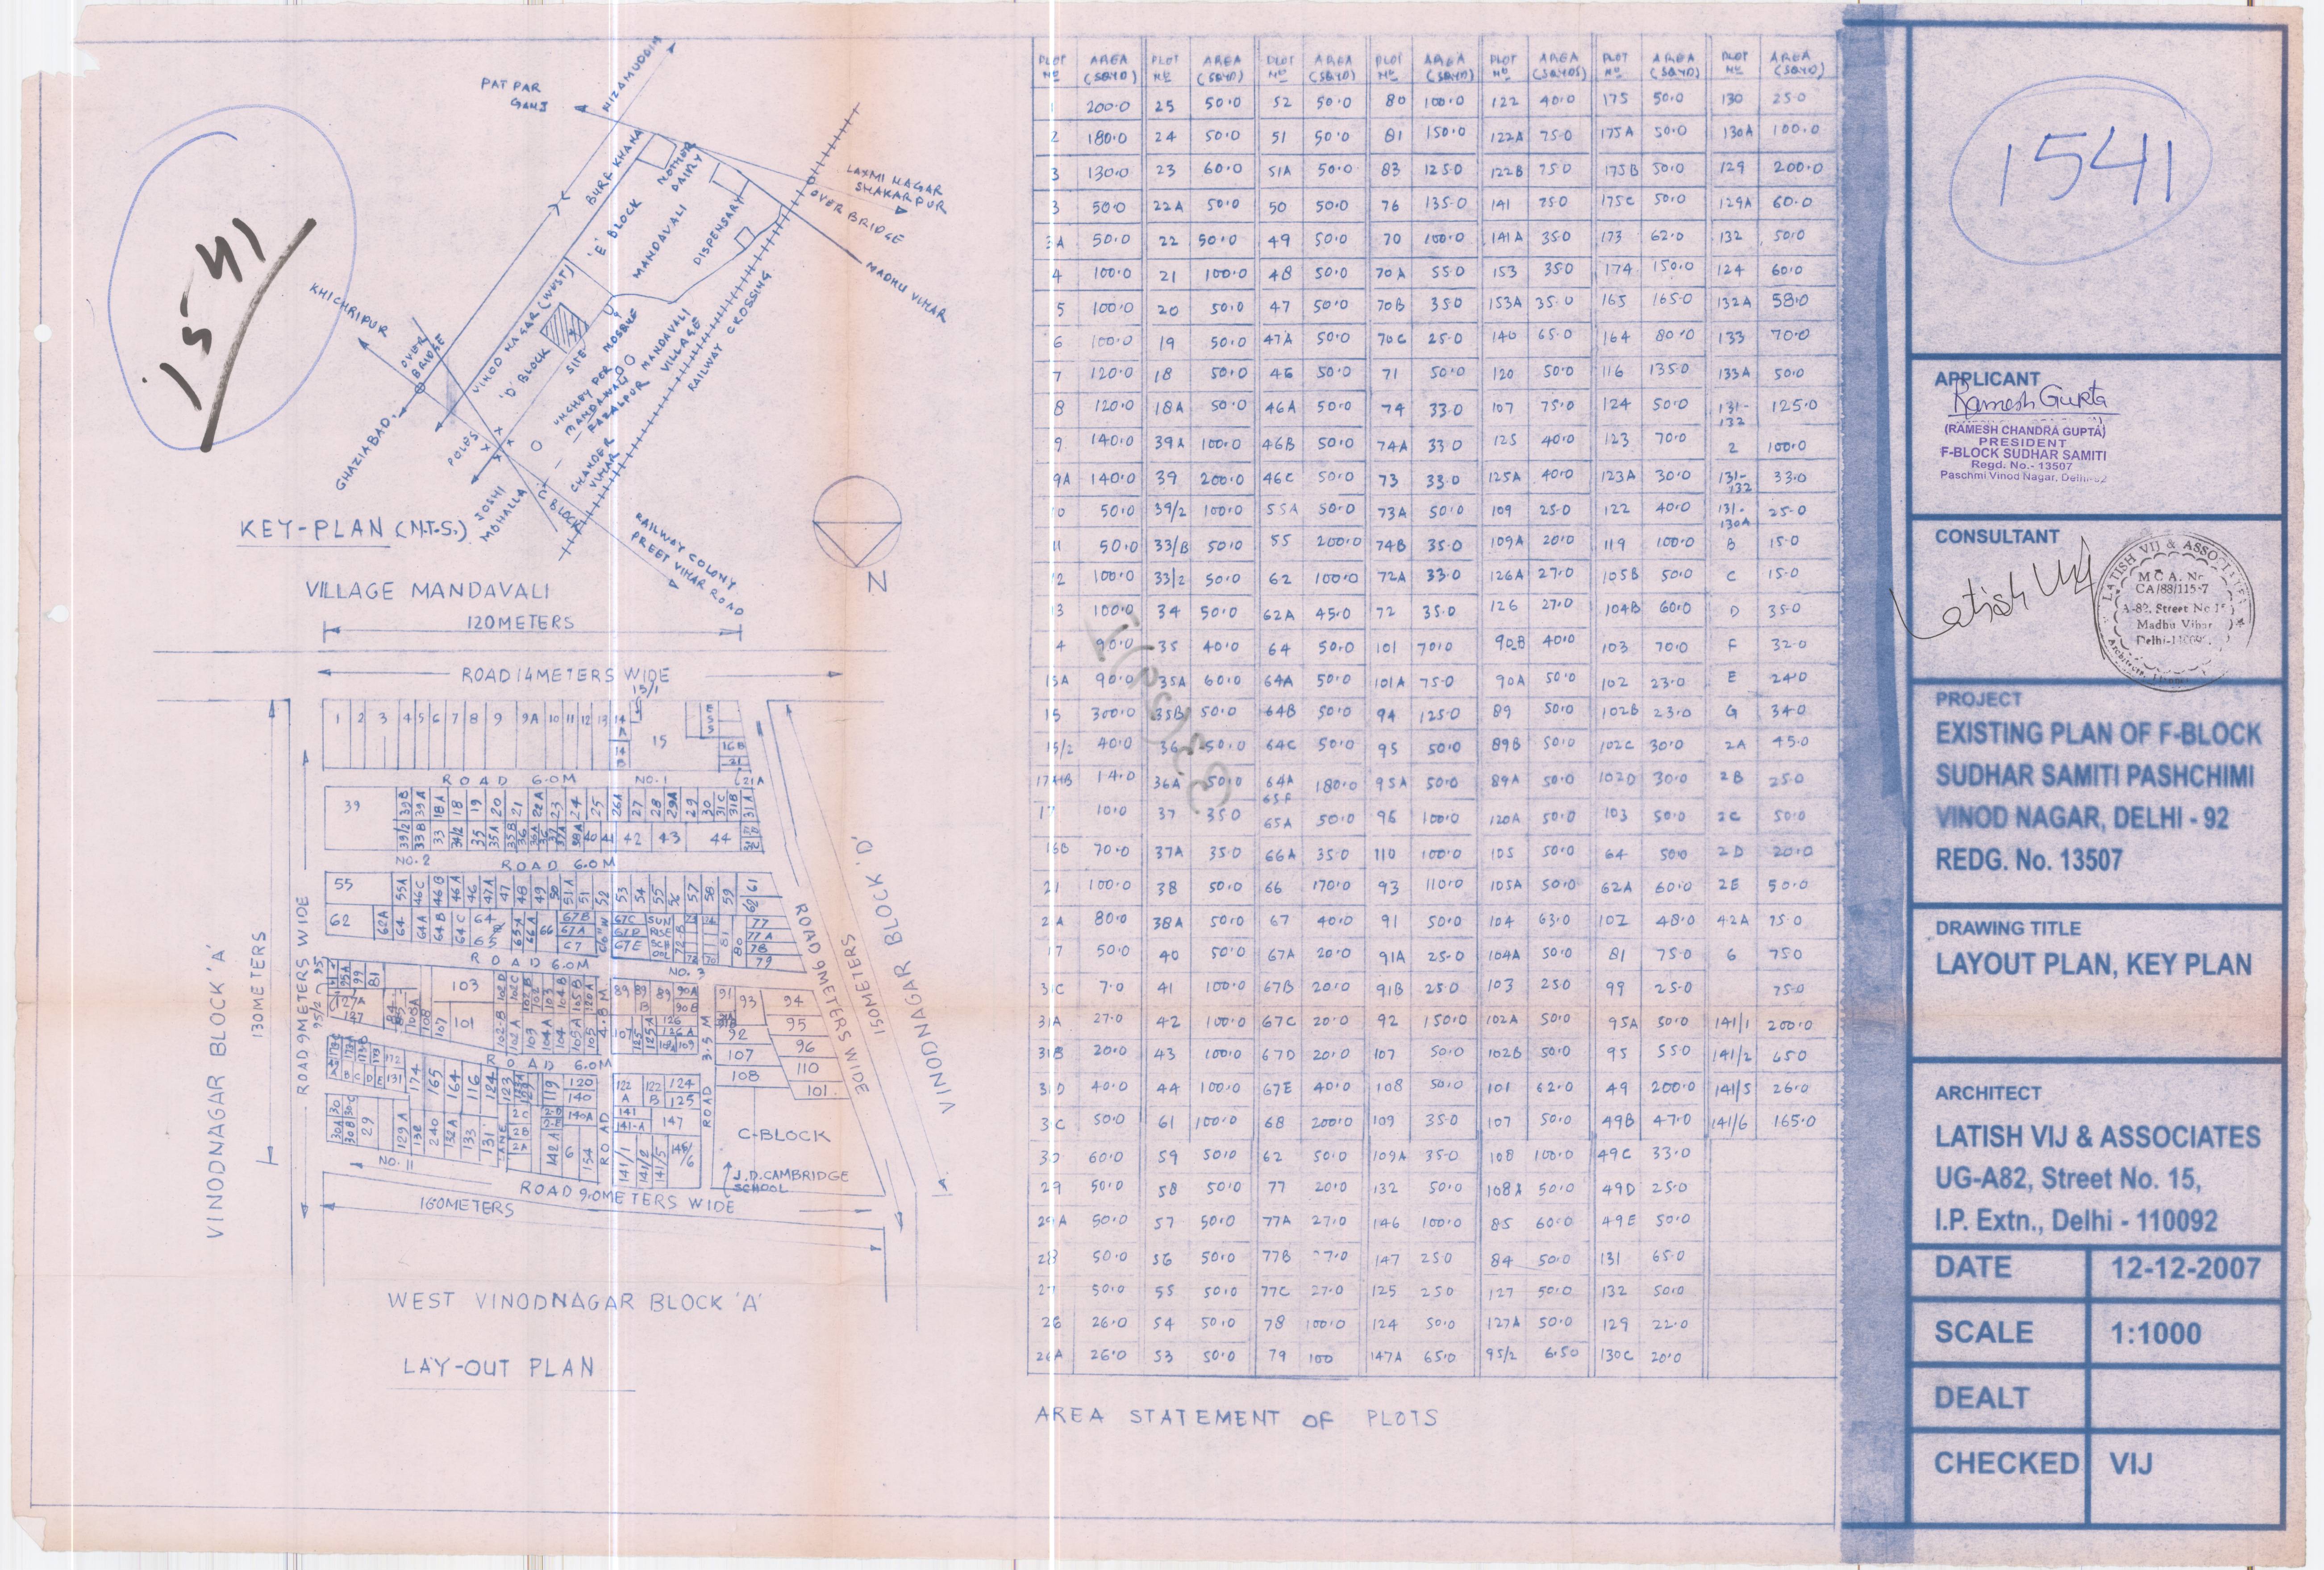 1541
PAT PAR
GANJ
NIZAMUDDIN
BURF KHANA
'E' BLOCK
MOTHOR
DAIRY
MANDAVALI
DISPENSARY
LAXMI NAGAR
SHAKARPUR
OVER BRIDGE
MADHU VIHAR
KHICHRIPUR
OVER
BRIDGE
VINOD NAGAR (WEST)
'D' BLOCK
SITE
MOSQUE
UNCHEY PER
MANDAVALI
FAZALPUR
MANDAVALI
VILLAGE
RAILWAY CROSSING
GHAZIABAD
POLES
JOSHI
MOHALLA
CHANDER
VIHAR
BLOCK
RAILWAY COLONY
PREET VIHAR ROAD
KEY-PLAN (N.T.S.)
N
VILLAGE MANDAVALI
120 METERS
ROAD 14 METERS WIDE
15/1
1 2 3 4 5 6 7 8 9 9A 10 11 12 13 14 A
14 B
15
16B
21
21A
ROAD 6.0M NO.1
39 39B 39A 18A 18 19 20 21 22A 23 24 25 26A 27 28 29A 29 30 31C 31B 31A
39/2 33B 33 34/2 35 35A 35B 36 36A 37 37A 38A 40 41 42 43 44
NO.2 ROAD 6.0M
55 55A 46C 46B 46A 46 47A 47 48 49 50 51A 51 52 53 54 55 56 57 58 59 62 61
62 62A 64 64A 64B 64C 64 65 65A 66A 66 67B 67A 67 67C 67D 67E 81 80 77 77A 78 79
ROAD 6.0M NO.3
VINODNAGAR BLOCK 'A'
130 METERS
ROAD 9 METERS WIDE
95/2
ROAD 9.0 METERS WIDE
150 METERS
VINODNAGAR BLOCK 'D'
103
101
107
ROAD 4.8 M
ROAD 3.5 M
91 93 94
95
92 96
107 110
108 101
ROAD 6.0M
174 165 164 116 124 123 119 120 140 122 A 122 B 124 125
29 129A 132 240 132A 133 131 LANE 142A 6 154 140A 141 141-A 147
141/1 141/2 141/5 141/6
NO.11
C-BLOCK
J.D.CAMBRIDGE
SCHOOL
ROAD 9.0 METERS WIDE
160 METERS
WEST VINODNAGAR BLOCK 'A'
LAY-OUT PLAN
PLOT No AREA (SQYD) PLOT No AREA (SQYD) PLOT No AREA (SQYD) PLOT No AREA (SQYD) PLOT No AREA (SQYDS) PLOT No AREA (SQYD) PLOT No AREA (SQYD)
1 200.0 25 50.0 52 50.0 80 100.0 122 40.0 175 50.0 130 25.0
2 180.0 24 50.0 51 50.0 81 150.0 122A 75.0 175A 50.0 130A 100.0
3 130.0 23 60.0 51A 50.0 83 125.0 122B 75.0 175B 50.0 129 200.0
3 50.0 22A 50.0 50 50.0 76 135.0 141 75.0 175C 50.0 129A 60.0
3A 50.0 22 50.0 49 50.0 70 100.0 141A 35.0 173 62.0 132 50.0
4 100.0 21 100.0 48 50.0 70A 55.0 153 35.0 174 150.0 124 60.0
5 100.0 20 50.0 47 50.0 70B 35.0 153A 35.0 165 165.0 132A 58.0
6 100.0 19 50.0 47A 50.0 70C 25.0 140 65.0 164 80.0 133 70.0
7 120.0 18 50.0 46 50.0 71 50.0 120 50.0 116 135.0 133A 50.0
8 120.0 18A 50.0 46A 50.0 74 33.0 107 75.0 124 50.0 131-132 125.0
9 140.0 39A 100.0 46B 50.0 74A 33.0 125 40.0 123 70.0 2 100.0
9A 140.0 39 200.0 46C 50.0 73 33.0 125A 40.0 123A 30.0 131-132 33.0
10 50.0 39/2 100.0 55A 50.0 73A 50.0 109 25.0 122 40.0 131-130A 25.0
11 50.0 33/B 50.0 55 200.0 74B 35.0 109A 20.0 119 100.0 B 15.0
12 100.0 33/2 50.0 62 100.0 72A 33.0 126A 27.0 105B 50.0 C 15.0
13 100.0 34 50.0 62A 45.0 72 35.0 126 27.0 104B 60.0 D 35.0
4 90.0 35 40.0 64 50.0 101 70.0 90B 40.0 103 70.0 F 32.0
13A 90.0 35A 60.0 64A 50.0 101A 75.0 90A 50.0 102 23.0 E 24.0
15 300.0 35B 50.0 64B 50.0 94 125.0 89 50.0 102B 23.0 G 34.0
15/2 40.0 36 50.0 64C 50.0 95 50.0 89B 50.0 102C 30.0 2A 45.0
17A1B 14.0 36A 50.0 64A 65F 180.0 95A 50.0 89A 50.0 102D 30.0 2B 25.0
17 10.0 37 35.0 65A 50.0 96 100.0 120A 50.0 103 50.0 2C 50.0
16B 70.0 37A 35.0 66A 35.0 110 100.0 105 50.0 64 50.0 2D 20.0
21 100.0 38 50.0 66 170.0 93 110.0 105A 50.0 62A 60.0 2E 50.0
2A 80.0 38A 50.0 67 40.0 91 50.0 104 63.0 102 48.0 42A 75.0
17 50.0 40 50.0 67A 20.0 91A 25.0 104A 50.0 81 75.0 6 75.0
31C 7.0 41 100.0 67B 20.0 91B 25.0 103 25.0 99 25.0 75.0
31A 27.0 42 100.0 67C 20.0 92 150.0 102A 50.0 95A 50.0 141/1 200.0
31B 20.0 43 100.0 67D 20.0 107 50.0 102B 50.0 95 55.0 141/2 65.0
31D 40.0 44 100.0 67E 40.0 108 50.0 101 62.0 49 200.0 141/5 26.0
3C 50.0 61 100.0 68 200.0 109 35.0 107 50.0 49B 47.0 141/6 165.0
30 60.0 59 50.0 62 50.0 109A 35.0 108 100.0 49C 33.0
29 50.0 58 50.0 77 20.0 132 50.0 108A 50.0 49D 25.0
29A 50.0 57 50.0 77A 27.0 146 100.0 85 60.0 49E 50.0
28 50.0 56 50.0 77B 27.0 147 25.0 84 50.0 131 65.0
27 50.0 55 50.0 77C 27.0 125 25.0 127 50.0 132 50.0
26 26.0 54 50.0 78 100.0 124 50.0 127A 50.0 129 22.0
26A 26.0 53 50.0 79 100 147A 65.0 95/2 6.50 130C 20.0
AREA STATEMENT OF PLOTS
1541
APPLICANT
Ramesh Gupta
(RAMESH CHANDRA GUPTA)
PRESIDENT
F-BLOCK SUDHAR SAMITI
Regd. No.- 13507
Paschmi Vinod Nagar, Delhi-92
CONSULTANT
Latish Vij
LATISH VIJ & ASSOCIATES
M C A. No
CA/88/115-7
A-82, Street No 15
Madhu Vihar
Delhi-110092
PROJECT
EXISTING PLAN OF F-BLOCK
SUDHAR SAMITI PASHCHIMI
VINOD NAGAR, DELHI - 92
REDG. No. 13507
DRAWING TITLE
LAYOUT PLAN, KEY PLAN
ARCHITECT
LATISH VIJ & ASSOCIATES
UG-A82, Street No. 15,
I.P. Extn., Delhi - 110092
DATE 12-12-2007
SCALE 1:1000
DEALT
CHECKED VIJ